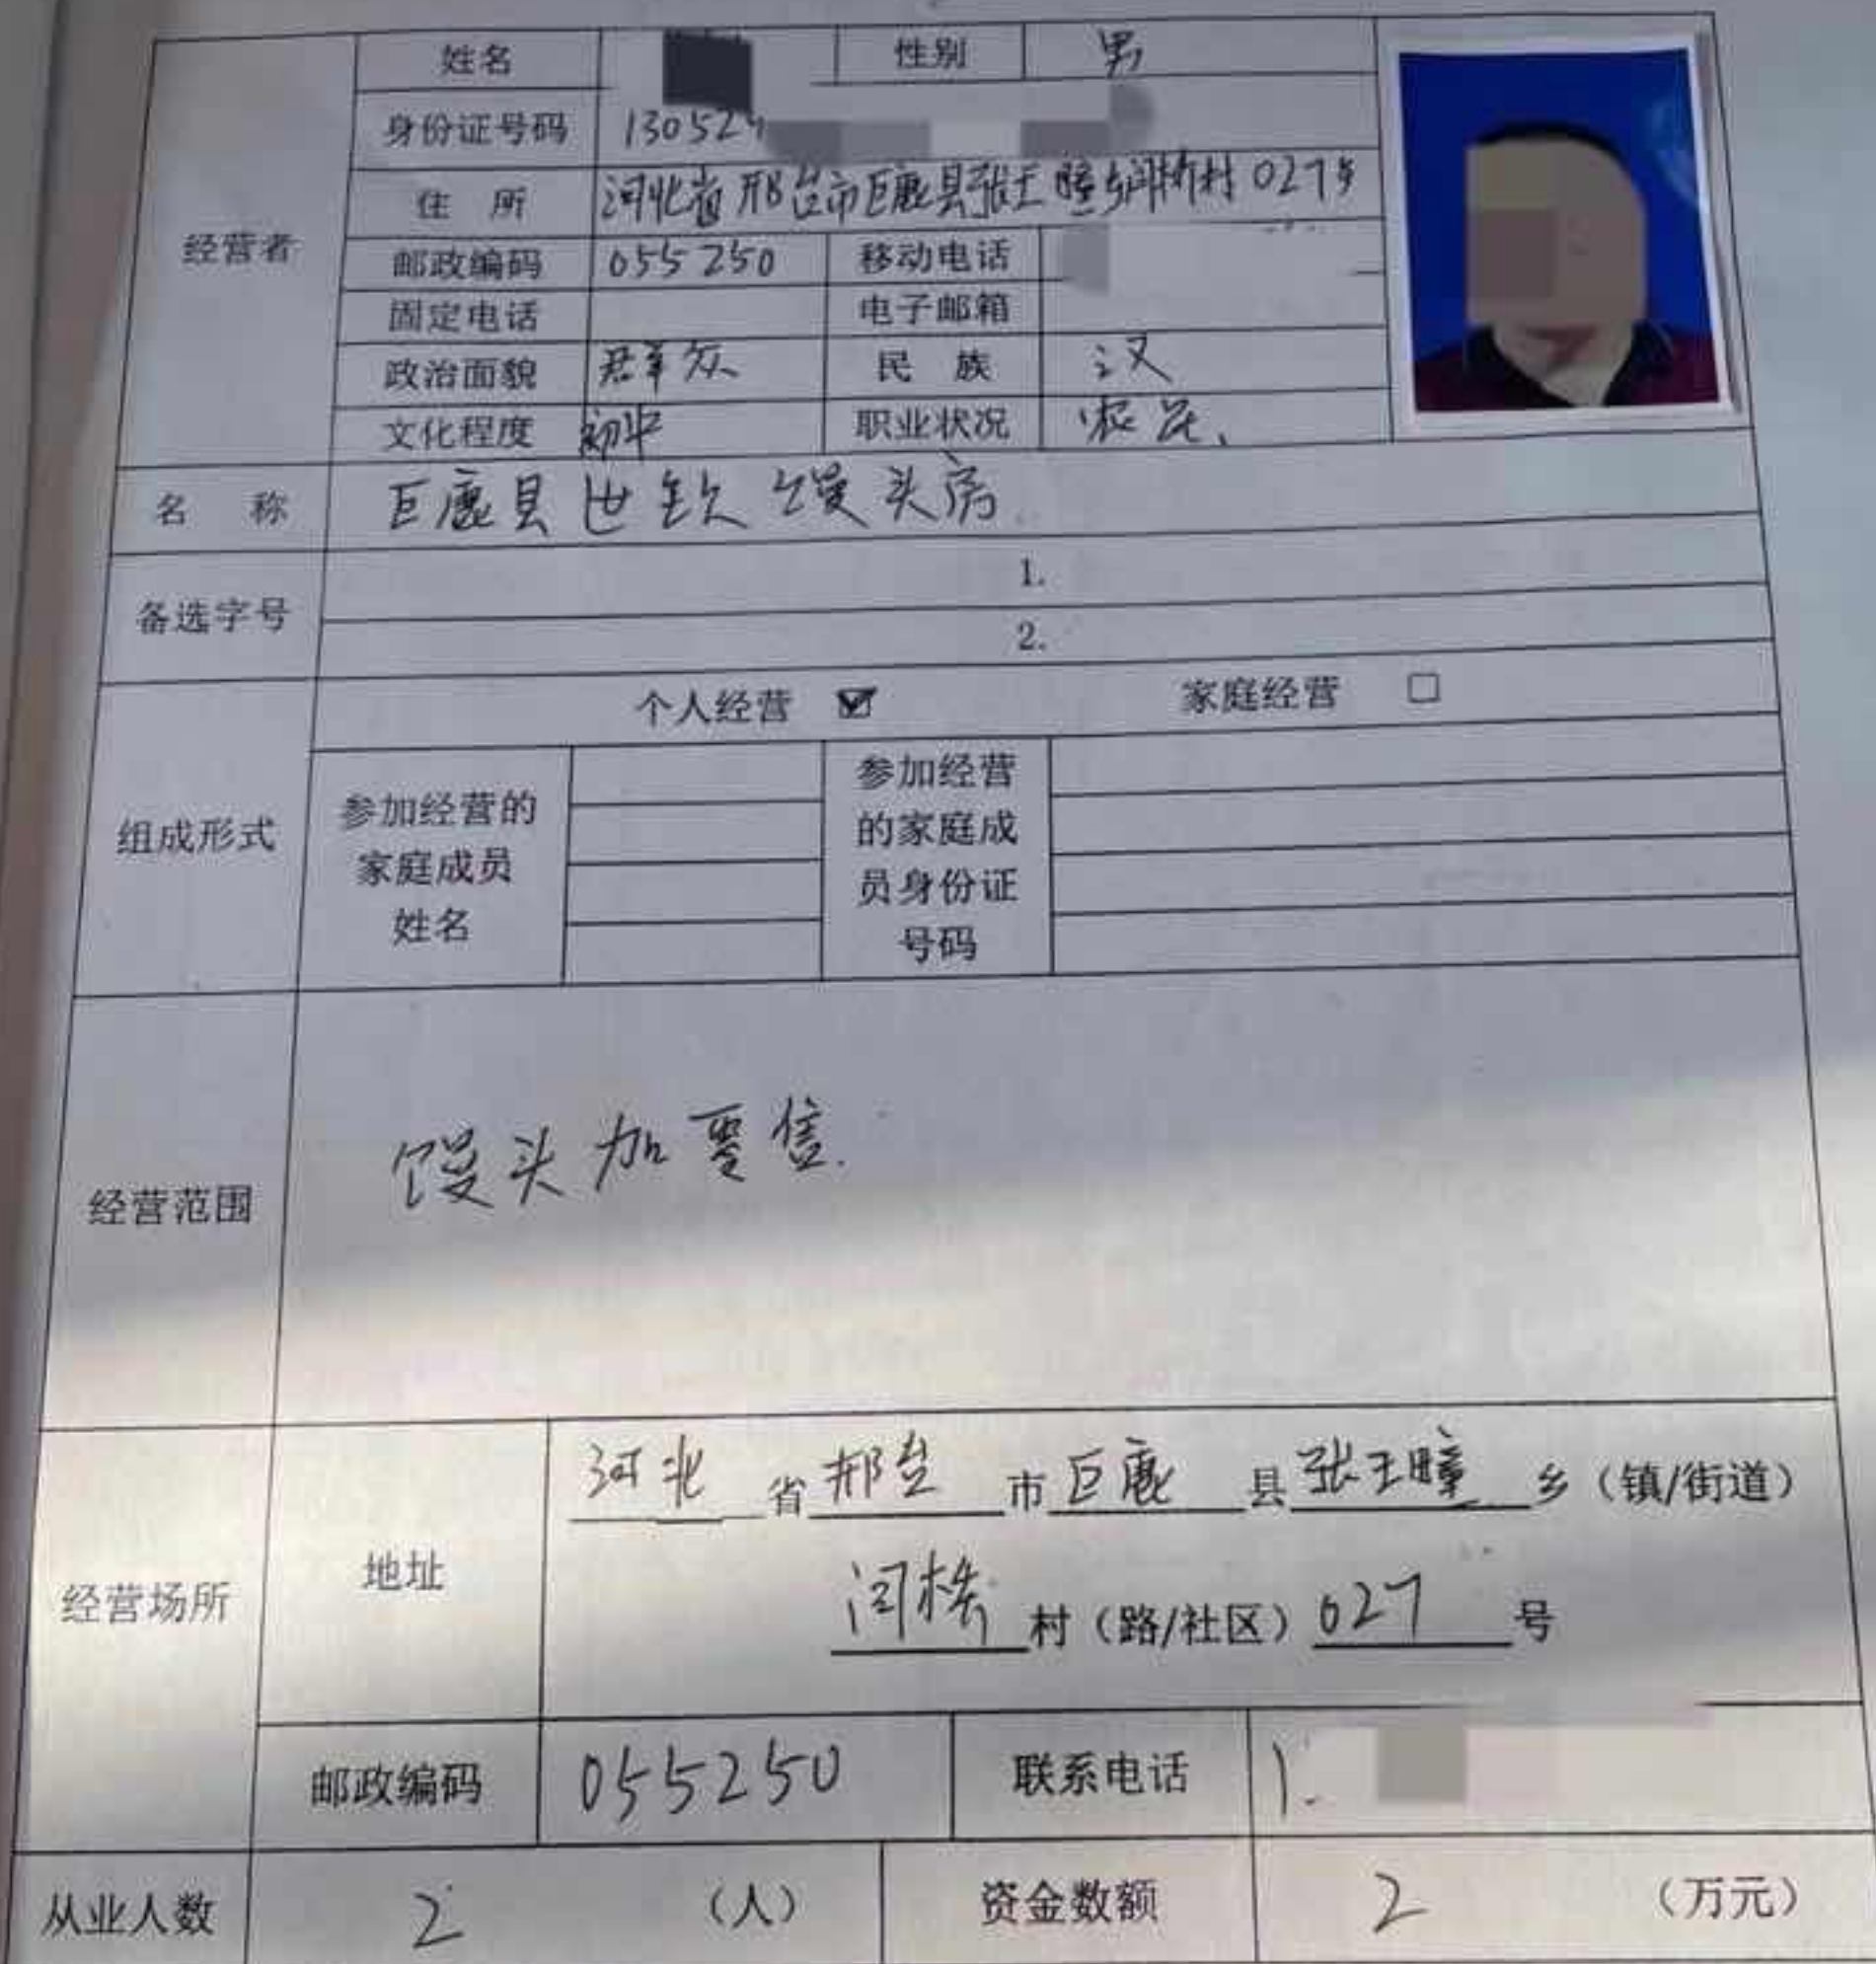 姓名 性别 男
身份证号码 130529
住 所 河北省邢台市巨鹿县张王疃乡闫桥村027号
经营者
邮政编码 055250 移动电话
固定电话 电子邮箱
政治面貌 群众 民 族 汉
文化程度 初中 职业状况 农民
名 称 巨鹿县世钦馒头房
备选字号
1.
2.
个人经营 ☑ 家庭经营 □
组成形式
参加经营的
家庭成员
姓名
参加经营
的家庭成
员身份证
号码
经营范围 馒头加零售
经营场所
地址
河北 省 邢台 市 巨鹿 县 张王疃 乡（镇/街道）
闫桥 村（路/社区）027 号
邮政编码 055250 联系电话 1
从业人数 2 （人） 资金数额 2 （万元）